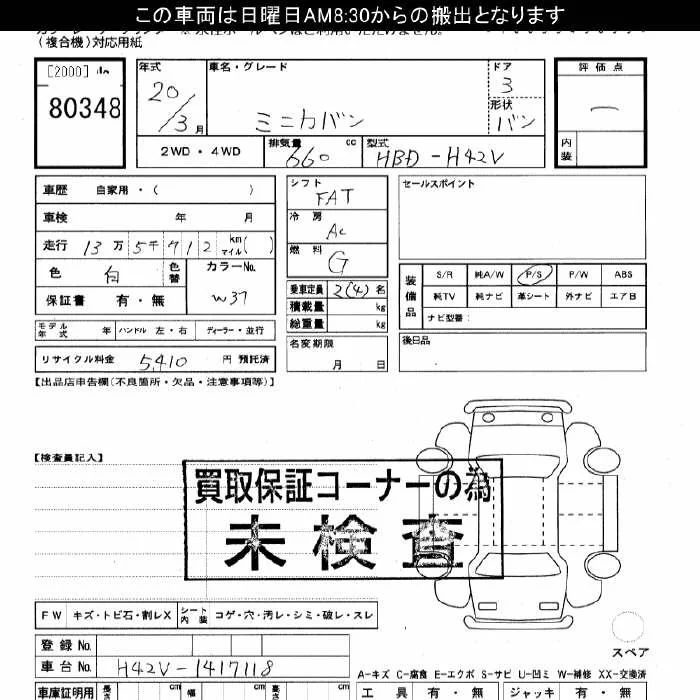 この車両は日曜日AM8:30からの搬出となります
(複合機)対応用紙
[2000]
80348
年式
20/3月
車名・グレード
ミニカバン
ドア
3
形状
バン
評価点
内装
2WD・4WD
排気量 660 cc
型式 HBD-H42V
車歴 自家用・( )
車検 年 月
走行 13万5千912 km マイル( )
色 白 色替 カラーNo. W37
保証書 有・無
モデル年式 年 ハンドル 左・右 ディーラー・並行
リサイクル料金 5,410 円 預託済
シフト FAT
冷房 AC
燃料 G
乗車定員 2(4) 名
積載量 kg
総重量 kg
名変期限
月 日
セールスポイント
装備品
S/R 純A/W P/S P/W ABS
純TV 純ナビ 革シート 外ナビ エアB
ナビ型番:
後日品
【出品店申告欄(不良箇所・欠品・注意事項等)】
【検査員記入】
買取保証コーナーの為
未検査
FW キズ・トビ石・割レX シート内装 コゲ・穴・汚レ・シミ・破レ・スレ
スペア
登録No.
車台No. H42V-1417118
A-キズ C-腐食 E-エクボ S-サビ U-凹ミ W-補修 XX-交換済
車庫証明用 長さ cm 幅 cm 高さ cm
工具 有・無 ジャッキ 有・無